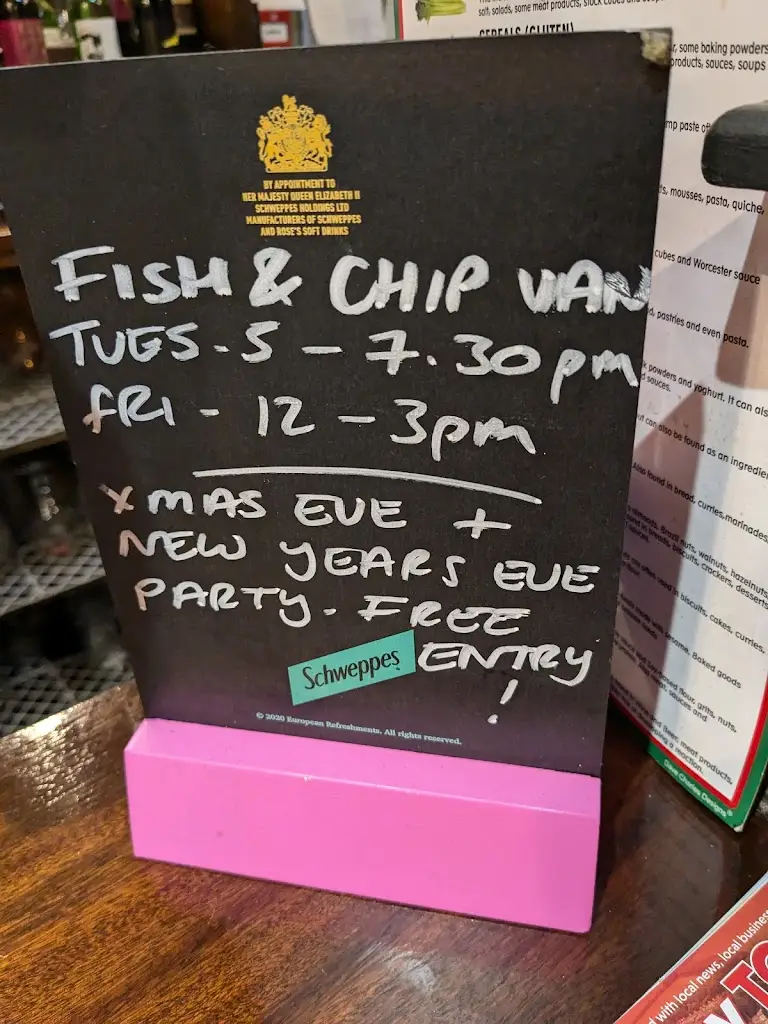 BY APPOINTMENT TO
HER MAJESTY QUEEN ELIZABETH II
SCHWEPPES HOLDINGS LTD
MANUFACTURERS OF SCHWEPPES
AND ROSE'S SOFT DRINKS
FISH & CHIP VAN
TUES - 5 - 7.30pm
FRI - 12 - 3pm
XMAS EVE +
NEW YEARS EVE
PARTY. FREE
ENTRY
!
Schweppes
© 2020 European Refreshments. All rights reserved.
salt, salads, some meat products, stock cubes and
CEREALS (GLUTEN)
, some baking powders
products, sauces, soups
mp paste
, mousses, pasta, quiche,
cubes and Worcester sauce
, pastries and even pasta.
powders and yoghurt. It can
sauces.
can also be found as an
found in bread, curries, marinades,
nuts, walnuts, hazelnuts,
breads, biscuits, crackers, desserts
used in biscuits, cakes, curries,
Baked goods
flour, grits, nuts,
sauces and
beer, meat products,
a reaction.
Dave Charles Designs®
with local news, local